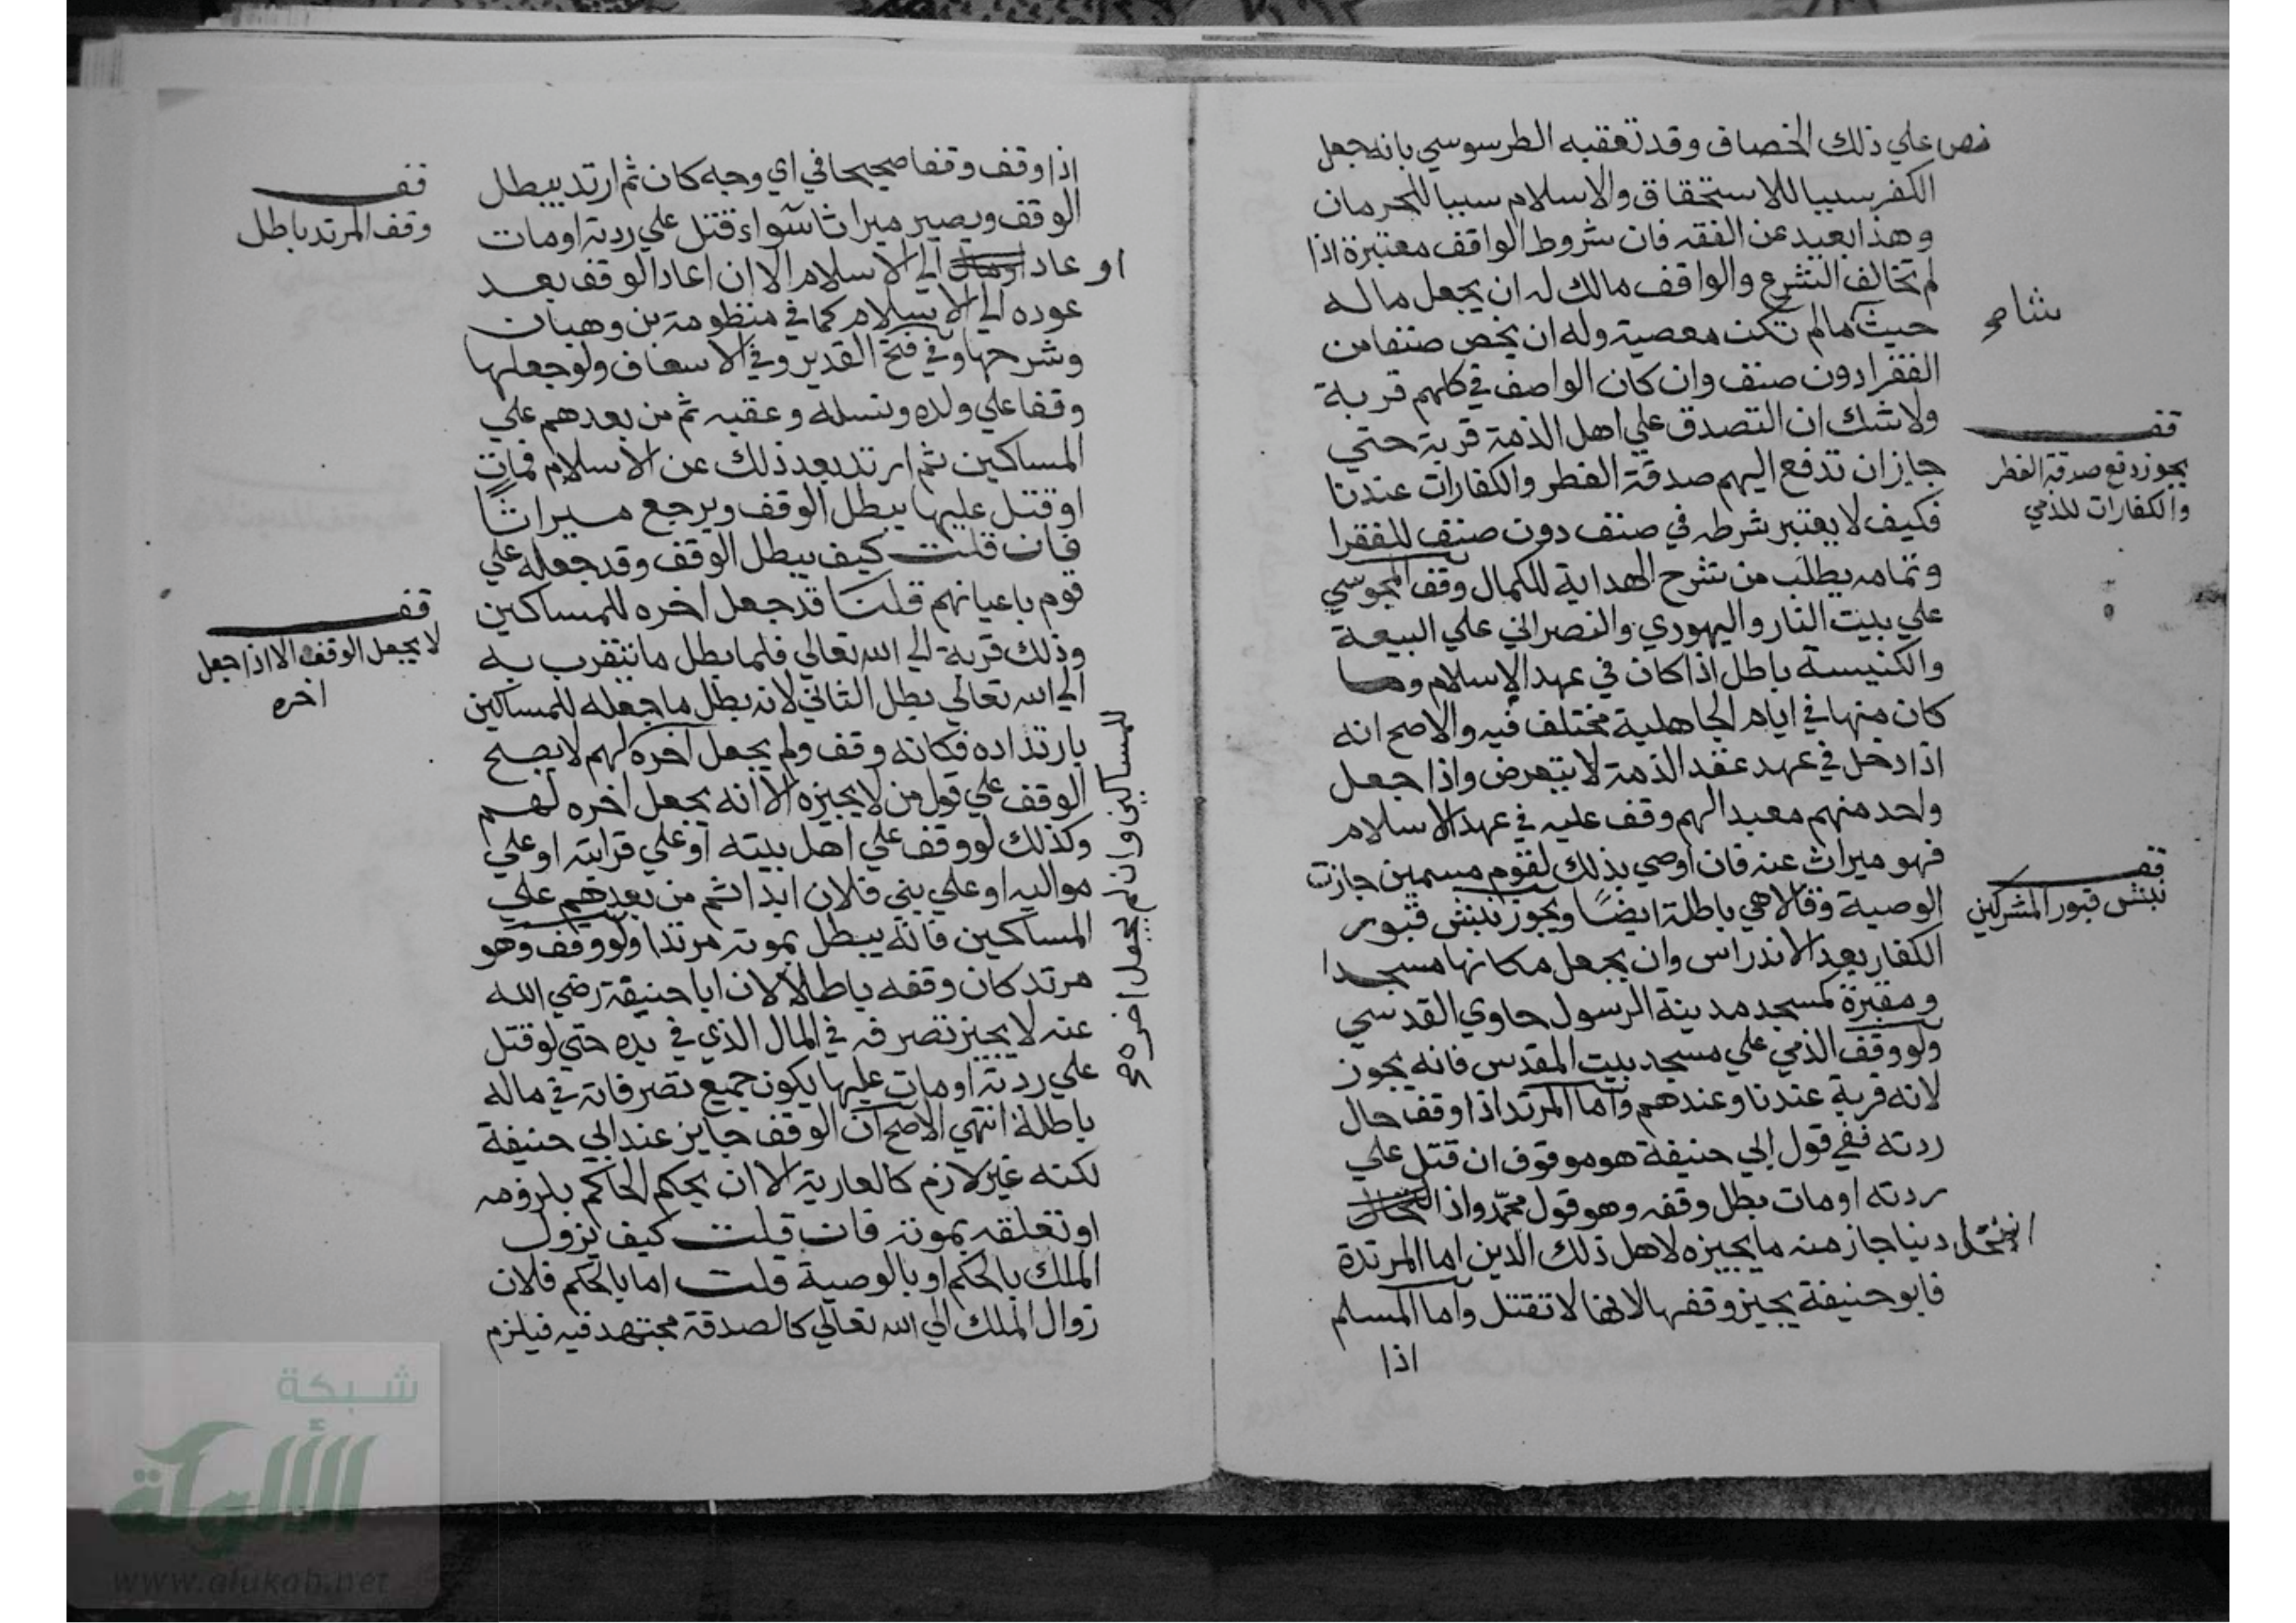 نص علي ذلك الخصاف وقد تعقبه الطرسوسي بانه جعل
الكفر سببا للاستحقاق والاسلام سببا للحرمان
وهذا بعيد من الفقه فان شروط الواقف معتبرة اذا
لم تخالف الشرع والواقف مالك له ان يجعل ماله
حيث ما لم تكن معصية وله ان يخص صنفا من
الفقرا دون صنف وان كان الواصف في كلهم قربة
ولا شك ان التصدق علي اهل الذمة قربة حتي
جاز ان تدفع اليهم صدقة الفطر والكفارات عندنا
فكيف لا يعتبر شرطه في صنف دون صنف للفقرا
وتمامه يطلب من شرح الهداية للكمال وقف المجوسي
علي بيت النار واليهودي والنصراني علي البيعة
والكنيسة باطل اذا كان في عهد الاسلام وما
كان منها في ايام الجاهلية مختلف فيه والاصح انه
اذا دخل في عهد عقد الذمة لا يتعرض واذا جعل
واحد منهم معبدا لهم وقف عليه في عهد الاسلام
فهو ميراث عنه فان اوصي بذلك لقوم مسمين جازت
الوصية وقالا هي باطلة ايضًا ويجوز نبش قبور
الكفار بعد الاندراس وان يجعل مكانها مسجدا
ومقبرة كمسجد مدينة الرسول حاوي القدسي
ولو وقف الذمي علي مسجد بيت المقدس فانه يجوز
لانه قربة عندنا وعندهم واما المرتد اذا وقف حال
ردته ففي قول ابي حنيفة هو موقوف ان قتل علي
ردته او مات بطل وقفه وهو قول محمد واذا
انتحل دينا جاز منه ما يجيزه لاهل ذلك الدين اما المرتدة
فابو حنيفة يجيز وقفها لانها لا تقتل واما المسلم
اذا
قف
يجوز دفع صدقة الفطر
والكفارات للذمي
قف
نبش قبور المشركين
اذا وقف وقفا صحيحا في اي وجه كان ثم ارتد يبطل
الوقف ويصير ميراثا سواء قتل علي ردته او مات
او عاد الي الاسلام الا ان اعاد الوقف بعد
عوده الي الاسلام كما في منظومة بن وهبان
وشرحها وفي فتح القدير وفي الاسعاف ولو جعلها
وقفا علي ولده ونسله وعقبه ثم من بعدهم علي
المساكين ثم ارتد بعد ذلك عن الاسلام فمات
او قتل عليها يبطل الوقف ويرجع ميراثًا
فان قلت كيف يبطل الوقف وقد جعله علي
قوم باعيانهم قلت قد جعل اخره للمساكين
وذلك قربة الي الله تعالي فلما بطل ما نتقرب به
الي الله تعالي بطل الثاني لانه بطل ما جعله للمساكين
بارتداده فكانه وقف ولم يجعل آخره لهم لا يصح
الوقف علي قول من لا يجيزه الا انه يجعل اخره لهم
وكذلك لو وقف علي اهل بيته او علي قرابته او علي
مواليه او علي بني فلان ابدا ثم من بعدهم علي
المساكين فانه يبطل بموته مرتدا ولو وقف وهو
مرتد كان وقفه باطلا لان ابا حنيفة رضي الله
عنه لا يجيز تصرفه في المال الذي في يده حتي لو قتل
علي ردته او مات عليها يكون جميع تصرفاته في ماله
باطلة انتهي الاصح ان الوقف جايز عند ابي حنيفة
لكنه غير لازم كالعارية الا ان يحكم الحاكم بلزومه
او تعلقه بموته فان قلت كيف يزول
الملك بالحكم او بالوصية قلت اما بالحكم فلان
زوال الملك الي الله تعالي كالصدقة مجتهد فيه فيلزم
للمساكين وان لم يجعل اخره
قف
وقف المرتد باطل
قف
لا يجعل الوقف الا اذا جعل
اخره
شبكة
الألوكة
www.alukah.net